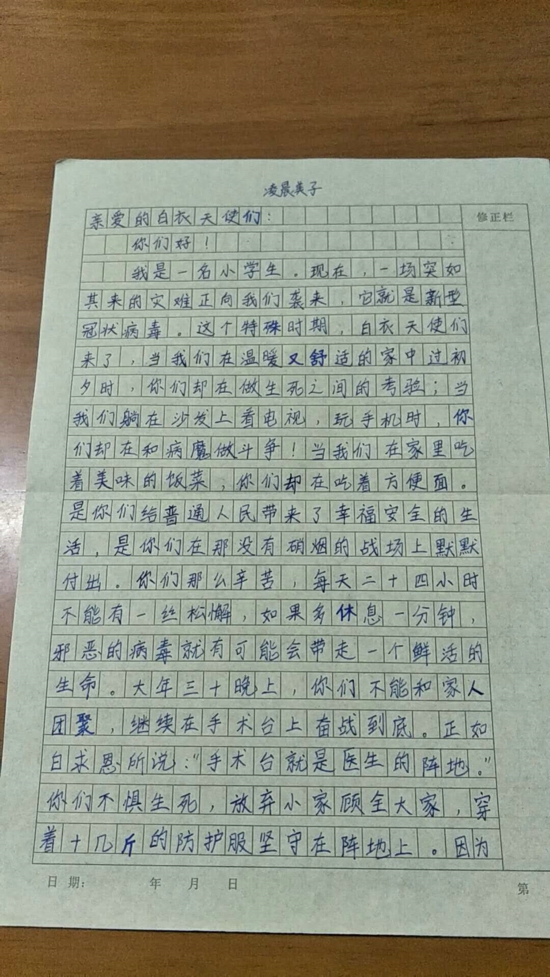 凌晨美子
亲爱的白衣天使们：
修正栏
你们好！
我是一名小学生。现在，一场突如
其来的灾难正向我们袭来，它就是新型
冠状病毒。这个特殊时期，白衣天使们
来了，当我们在温暖又舒适的家中过初
夕时，你们却在做生死之间的考验；当
我们躺在沙发上看电视，玩手机时，你
们却在和病魔做斗争！当我们在家里吃
着美味的饭菜，你们却在吃着方便面。
是你们给普通人民带来了幸福安全的生
活，是你们在那没有硝烟的战场上默默
付出。你们那么辛苦，每天二十四小时
不能有一丝松懈，如果多休息一分钟，
邪恶的病毒就有可能会带走一个鲜活的
生命。大年三十晚上，你们不能和家人
团聚，继续在手术台上奋战到底。正如
白求恩所说：“手术台就是医生的阵地。”
你们不惧生死，放弃小家顾全大家，穿
着十几斤的防护服坚守在阵地上。因为
日 期： 年 月 日 第